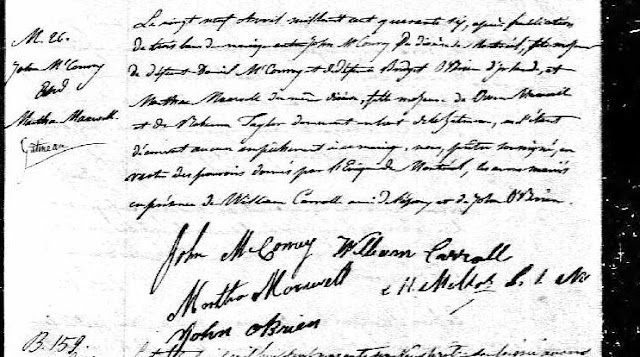 M. 26.
John McConvy
and
Martha Maxwell
Gatineau
Le vingt neuf Avril mil huit cent quarante six, après publication
de trois bans de mariage entre John McConvy du diocèse de Montréal, fils majeur
de défunt Daniel McConvy et de défunte Bridget O'Brien d'Irlande, et
Martha Maxwell du même diocèse, fille majeure de Owen Maxwell
et de Taylor demeurant de la Gatineau, ne s'étant
découvert aucun empêchement à ce mariage, nous, prêtre soussigné, en
vertu des pouvoirs donnés par l'Evêque de Montréal, les avons mariés
en présence de William Carroll ami de l'époux et de John O'Brien.
John McConvy William Carroll
Martha Maxwell
John OBrien
B. 159.